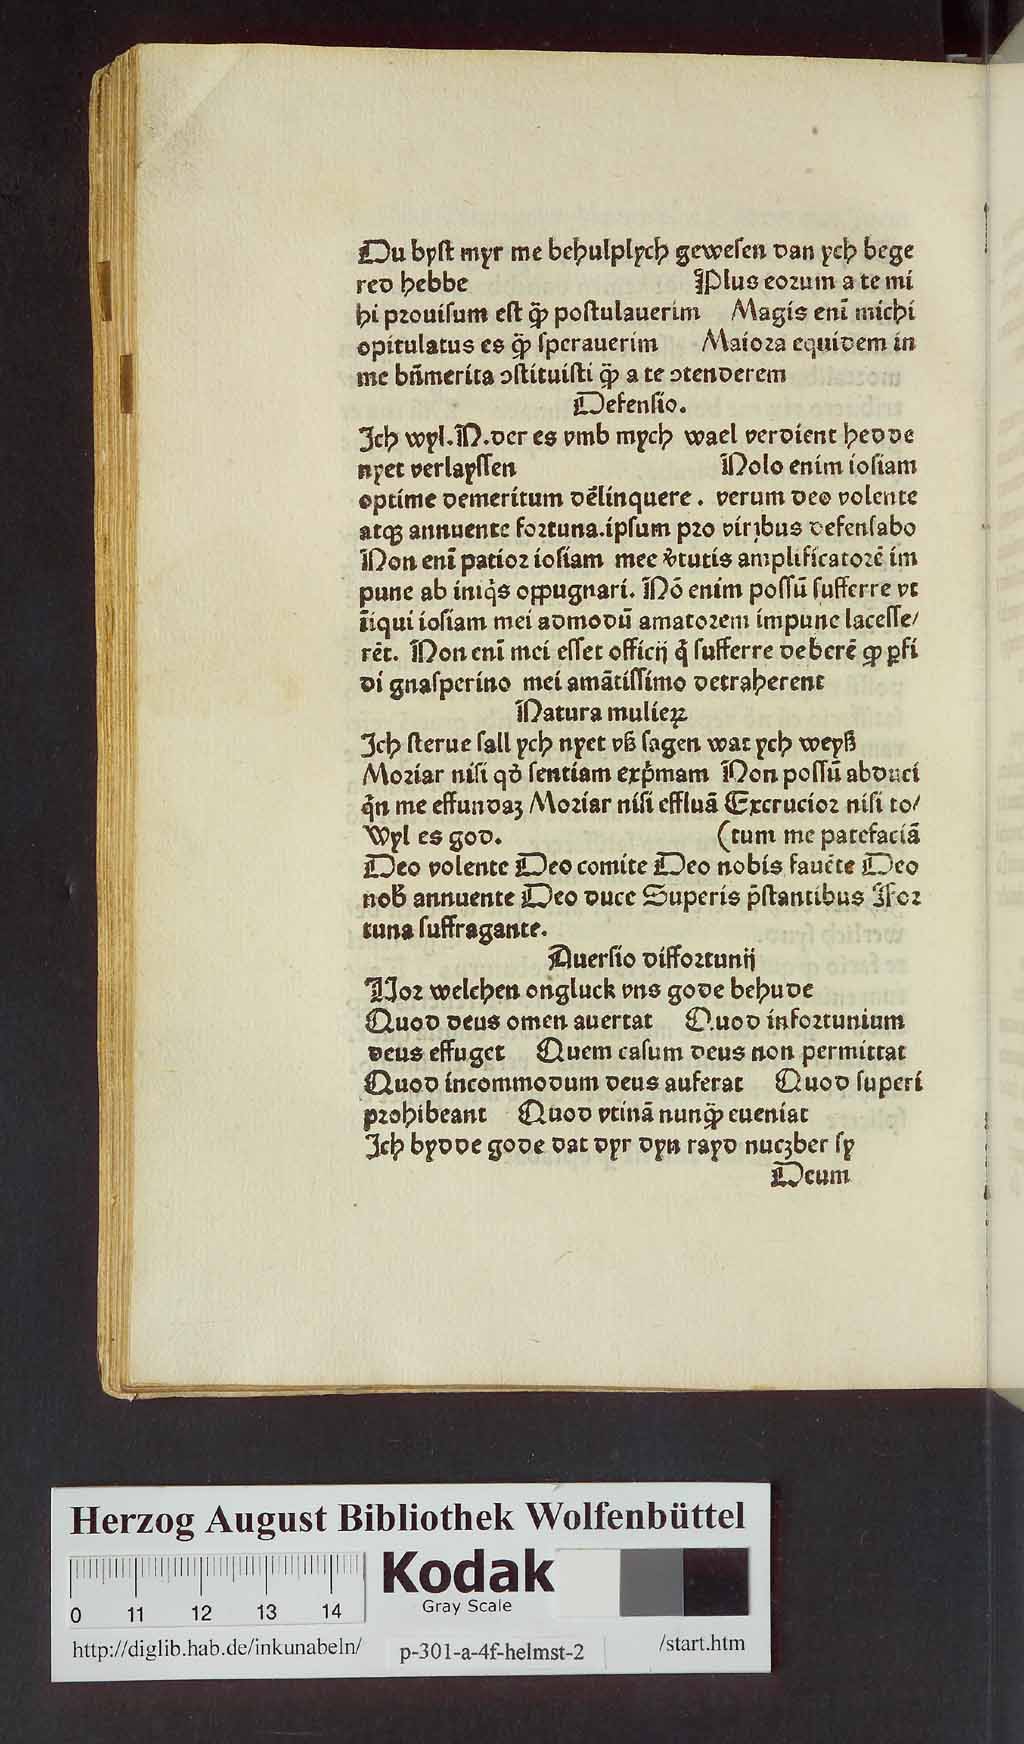 Du byſt myr me behulplych geweſen dan ych bege
red hebbe Plus eorum a te mi
hi prouiſum eſt q̃ꝫ poſtulauerim Magis enĩ michi
opitulatus es q̃ꝫ ſperauerim Maiora equidem in
me bñmerita ↄſtituiſti q̃ꝫ a te ↄtenderem
Defenſio.
Ich wyl.N.der es vmb mych wael verdient hedde
nyet verlayſſen Nolo enim ioſiam
optime demeritum dẽlinquere. verum deo volente
atqꝫ annuente fortuna.ipſum pro viribus defenſabo
Non enĩ patior ioſiam mee v̓tutis amplificatorẽ im
pune ab iniq̇s oppugnari. Nõ enim poſſũ ſufferre vt
ĩiqui ioſiam mei admodũ amatorem impune laceſſe/
rẽt. Non enĩ mei eſſet officij q̇ ſufferre deberẽ ꝙ ꝑfi
di gnaſperino mei amãtiſſimo detraherent
Natura mulieꝝ
Ich ſterue ſall ych nyet vß ſagen wat ych weyß
Moriar niſi qd̓ ſentiam exp̓mam Non poſſũ abduci
q̇n me effundaꝫ Moriar niſi effluã Excrucior niſi to/
Wyl es god. (tum me patefaciã
Deo volente Deo comite Deo nobis fauẽte Deo
nob̓ annuente Deo duce Superis p̃ſtantibus For
tuna ſuffragante.
Auerſio diffortunij
Vor welchen ongluck vns gode behude
Quod deus omen auertat Quod infortunium
deus effuget Quem caſum deus non permittat
Quod incommodum deus auferat Quod ſuperi
prohibeant Quod vtinã nunq̃ꝫ eueniat
Ich bydde gode dat dyr dyn rayd nuczber ſy
Deum
Herzog August Bibliothek Wolfenbüttel
Kodak
Gray Scale
0 11 12 13 14
http://diglib.hab.de/inkunabeln/ p-301-a-4f-helmst-2 /start.htm